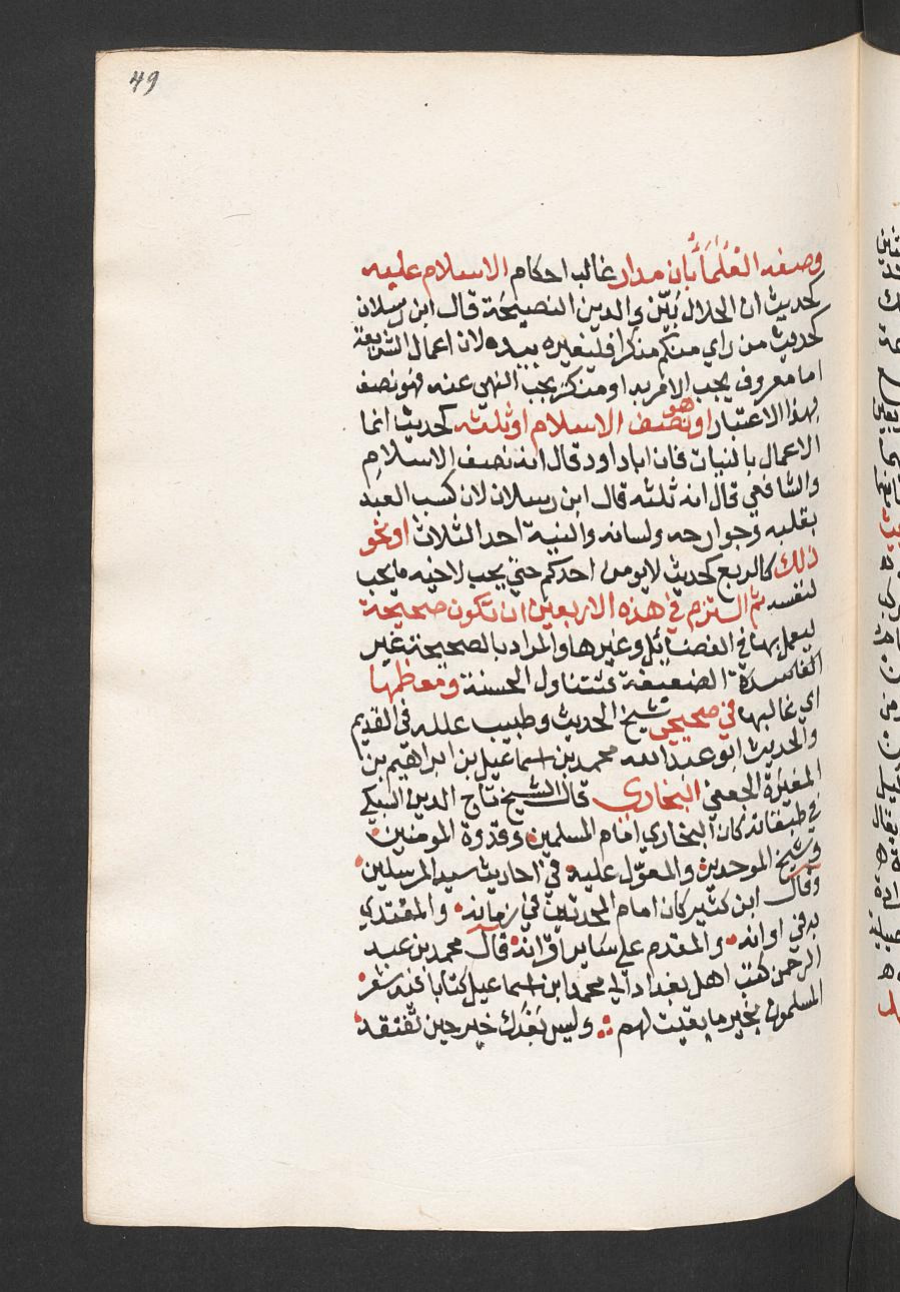 49
وصفه العُلَمَاءُ بان مدار غالب احكام الاسلام عليه
كحديث ان الحلال بَيّن والدين النصيحة قال ابن رسلان
كحديث من راي منكم منكرا فليغيره بيده لان اعمال الشريعة
اما معروف يجب الامر به او منكر يجب النهي عنه فهو نصف
بهذا الاعتبار او هو نصف الاسلام او ثلثه كحديث انما
الاعمال بالنيات فان ابا داود قال انه نصف الاسلام
والشافعي قال انه ثلثه قال ابن رسلان لان كسب العبد
بقلبه وجوارحه ولسانه والنية احد الثلاث او نحو
ذلك كالربع كحديث لا يومن احدكم حتي يحب لاخيه ما يحب
لنفسه ثم التزم في هذه الاربعين ان تكون صحيحة
ليعمل بها في الفضائل وغيرها والمراد بالصحيحة غير
الفاسدة الضعيفة فتتناول الحسنة ومعظمها
اي غالبها في صحيحي شيخ الحديث وطبيب علله في القديم
والحديث ابو عبد الله محمد بن اسماعيل بن ابراهيم بن
المغيرة الجعفي البخاري قال الشيخ تاج الدين السبكي
في طبقاته كان البخاري امام المسلمين وقدوة المومنين
وشيخ الموحدين والمعوّل عليه في احاديث سيد المرسلين
وقال ابن كثير كان امام المحدثين في زمانه والمقتدي
به في اوانه والمقدم علي ساير اقرانه قال محمد بن عبد
الرحمن كتب اهل بغداد الي محمد ابن اسماعيل كتابا فيه شعر
المسلمون بخير ما بقيت لهم وليس بَعْدك خير حين تفتقد